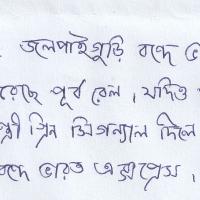 জলপাইগুড়ি বন্দে ভ
রেছে পূর্ব রেল। যদিও
ন্ত্রী গ্রিন সিগন্যাল দিলে
বন্দে ভারত এক্সপ্রেস।